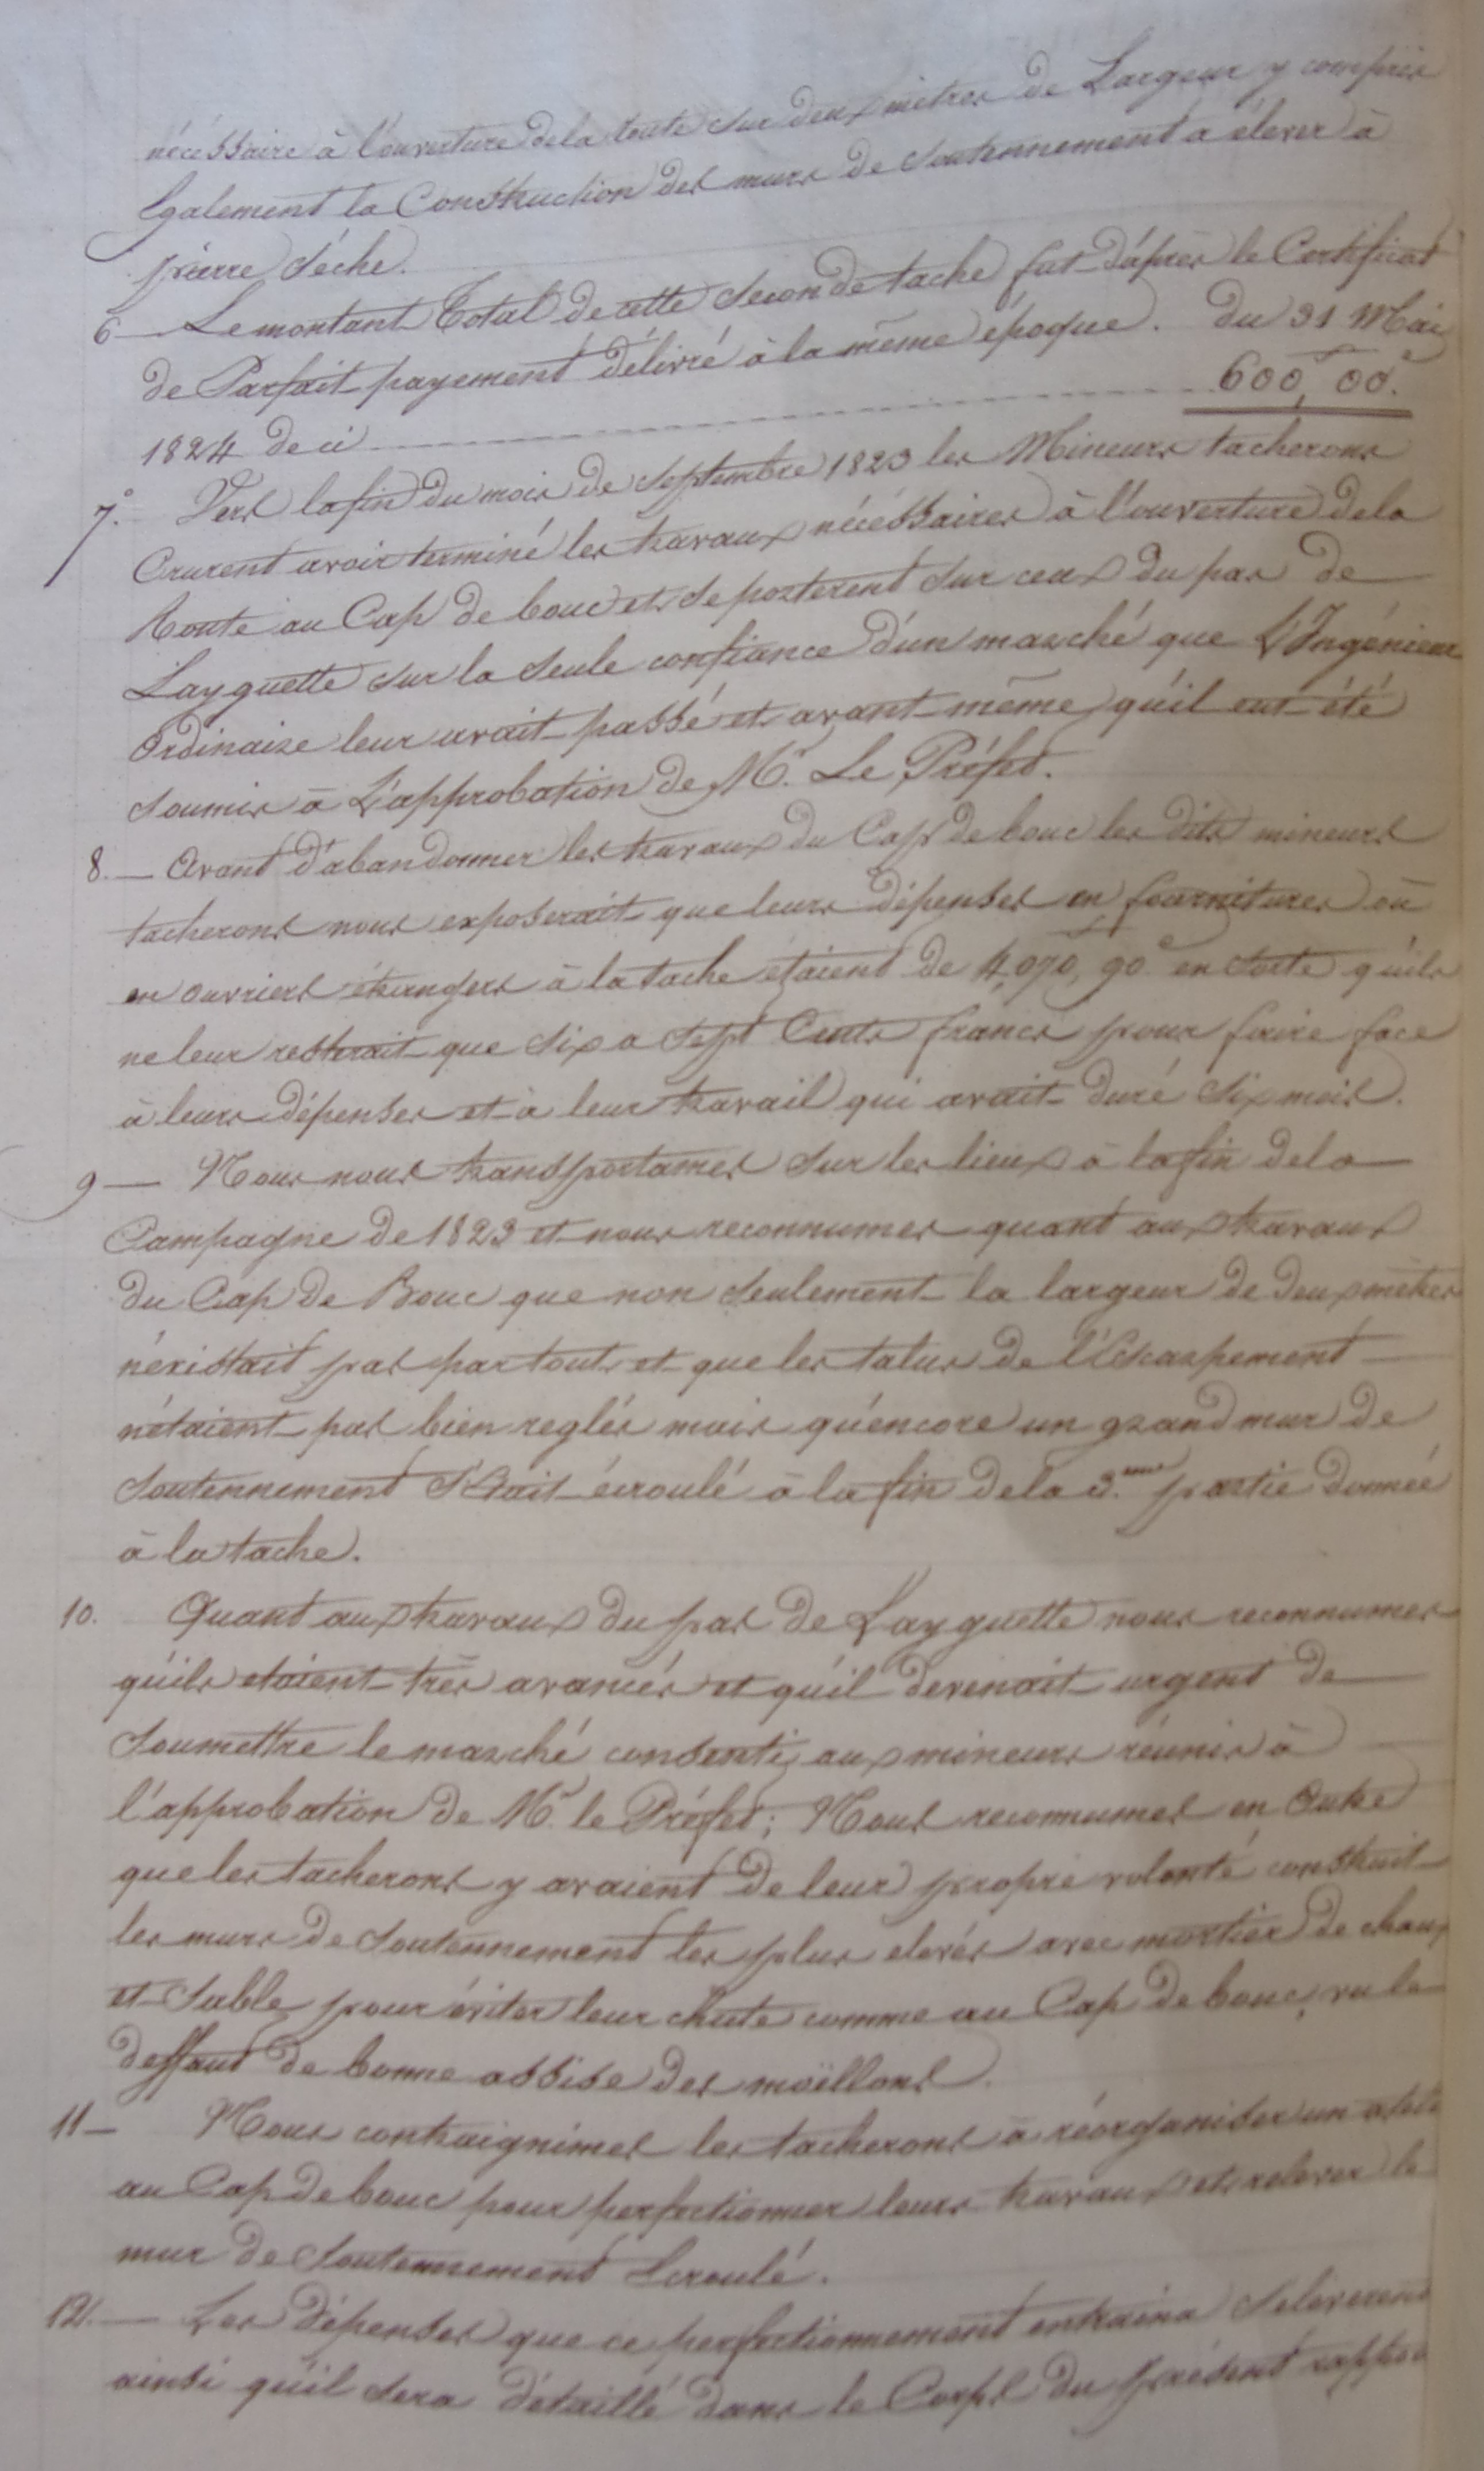 nécéssaire à l'ouverture dela route sur deux mètres de Largeur y compris
Egalement la Construction des murs de soutennement a élever à
pierre séche.
6 — Le montant Total de cette seconde tache fut d'après le Certificat
de Parfait payement délivré à la même époque. du 31 Mai
1824 de ci 600,f 00.c
7.° Vers la fin du mois de septembre 1823 les Mineurs tacherons
Crurent avoir terminé les travaux nécéssaires à l'ouverture dela
Route au Cap de bouc et se porterent sur ceux du pas de
Layguette sur la seule confiance d'un marché que L'Ingénieur
Ordinaire leur avait passé et avant même qu'il eut été
soumis à L'approbation de Mr. Le Préfet.
8. — Avant d'abandonner les travaux du Cap de bouc les dits mineurs
tacherons nous exposerait que leurs dépenses en fournitures ou
en ouvriers étrangers à la tache étaient de 4,070,f 90c en sorte qu'ils
ne leur resterait que six a sept Cents francs pour faire face
à leurs dépenses et à leur travail qui avait duré six mois.
9 — Nous nous transportames sur les lieux à la fin dela
Campagne de 1823 et nous reconnumes quant aux travaux
du Cap de Bouc que non seulement la largeur de deux mètres
n'éxistait pas par tout et que les talus de l'Escarpement
n'étaient pas bien reglés mais qu'encore un grand mur de
soutennement s'était écroulé à la fin dela 3.eme partie donnée
à la tache.
10. Quant aux travaux du pas de Layguette nous reconnumes
qu'ils etaient très avancés et qu'il devenait urgent de
soumettre le marché consenti aux mineurs réunis à
l'approbation de Mr. le Préfet; Nous reconnumes en Outre
que les tacherons y avaient de leur propre volonté construit
les murs de soutennement les plus elevés avec mortier de chaux
et sable pour éviter leur chute comme au Cap de bouc, vu le
deffaut de bonne assise des moëllons.
11 — Nous contraignimes les tacherons à réorganiser un
au Cap de bouc pour perfectionner leurs travaux et relever le
mur de soutennement Ecroulé.
12. — Les dépenses que ce perfectionnement entraina s'eleverent
ainsi qu'il sera détaillé dans le Corps du présent rapport